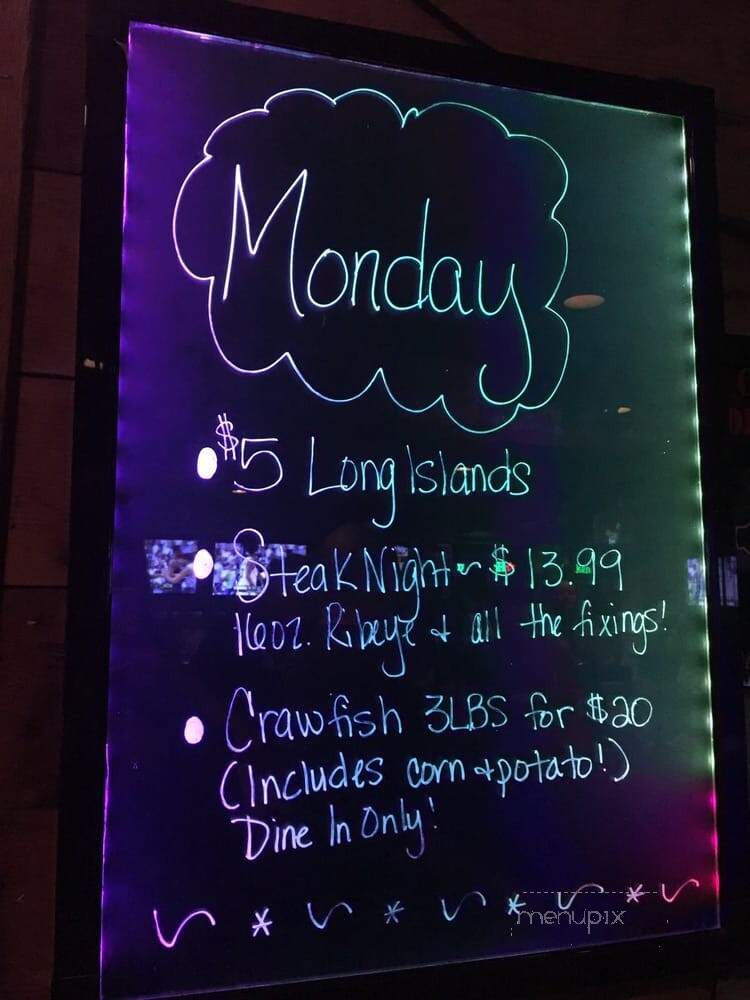 Monday
$5 Long Islands
Steak Night ~ $13.99
16oz. Ribeye & all the fixings!
Crawfish 3LBS for $20
(Includes corn & potato!)
Dine In Only!
menupix